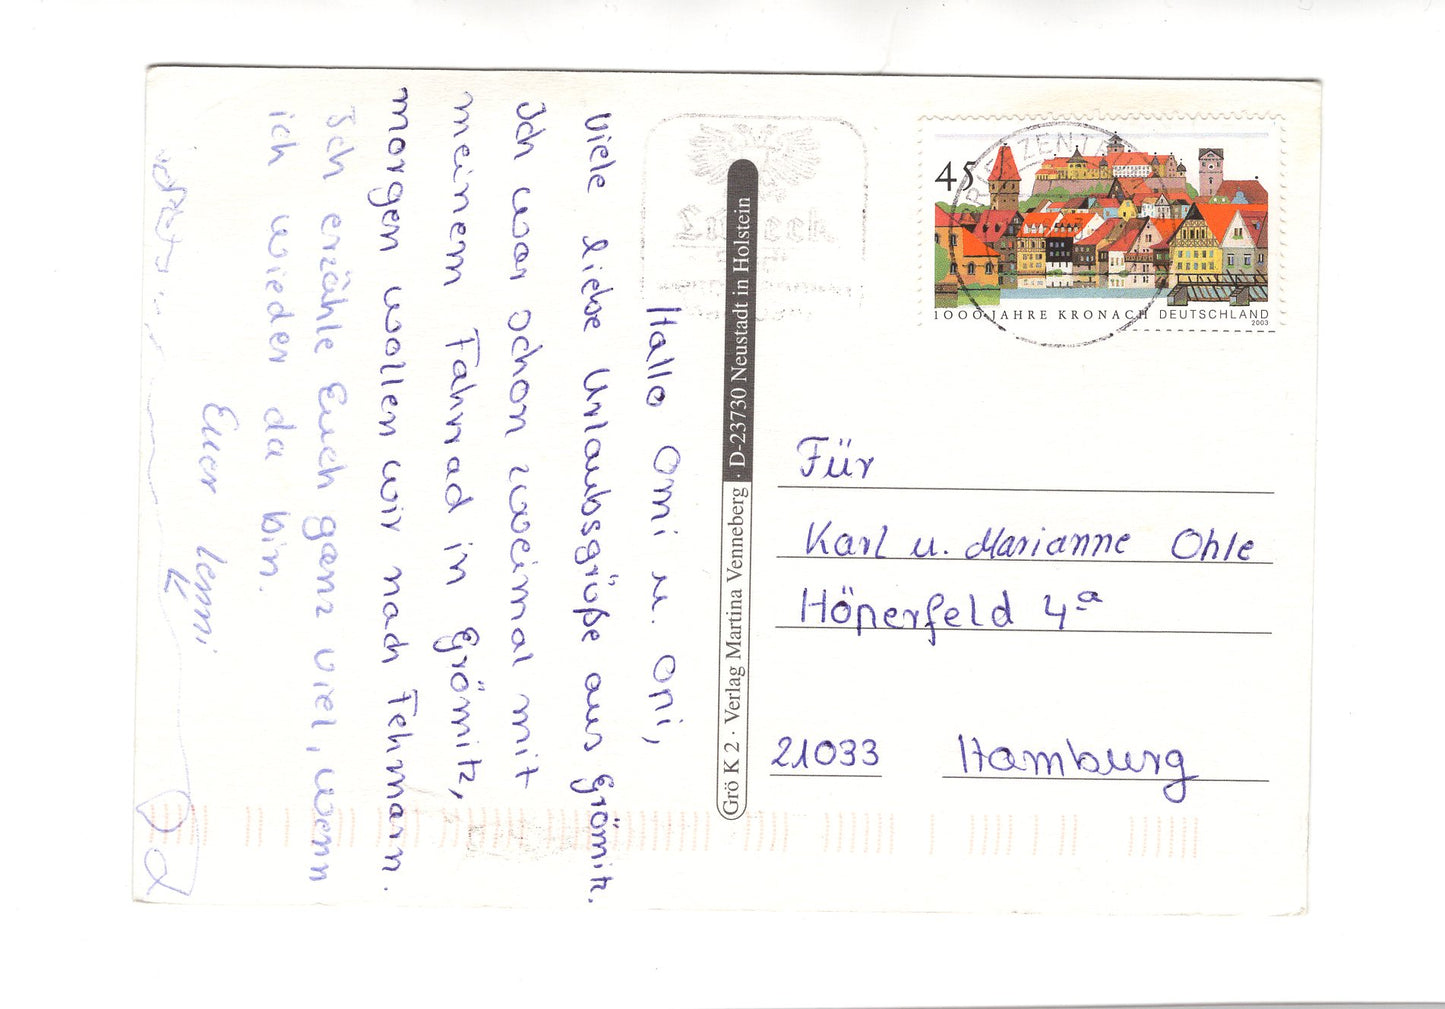 Hallo Omi u. Opi,
viele liebe Urlaubsgrüße aus Grömitz.
Ich war schon zweimal mit
meinem Fahrrad in Grömitz,
morgen wollen wir nach Fehmarn.
Ich erzähle Euch ganz viel, wenn
ich wieder da bin.
Euer
Grö K 2 · Verlag Martina Venneberg · D-23730 Neustadt in Holstein
45
1000 JAHRE KRONACH DEUTSCHLAND
2003
BRIEFZENTR
Für
Karl u. Marianne Ohle
Höperfeld 4a
21033 Hamburg